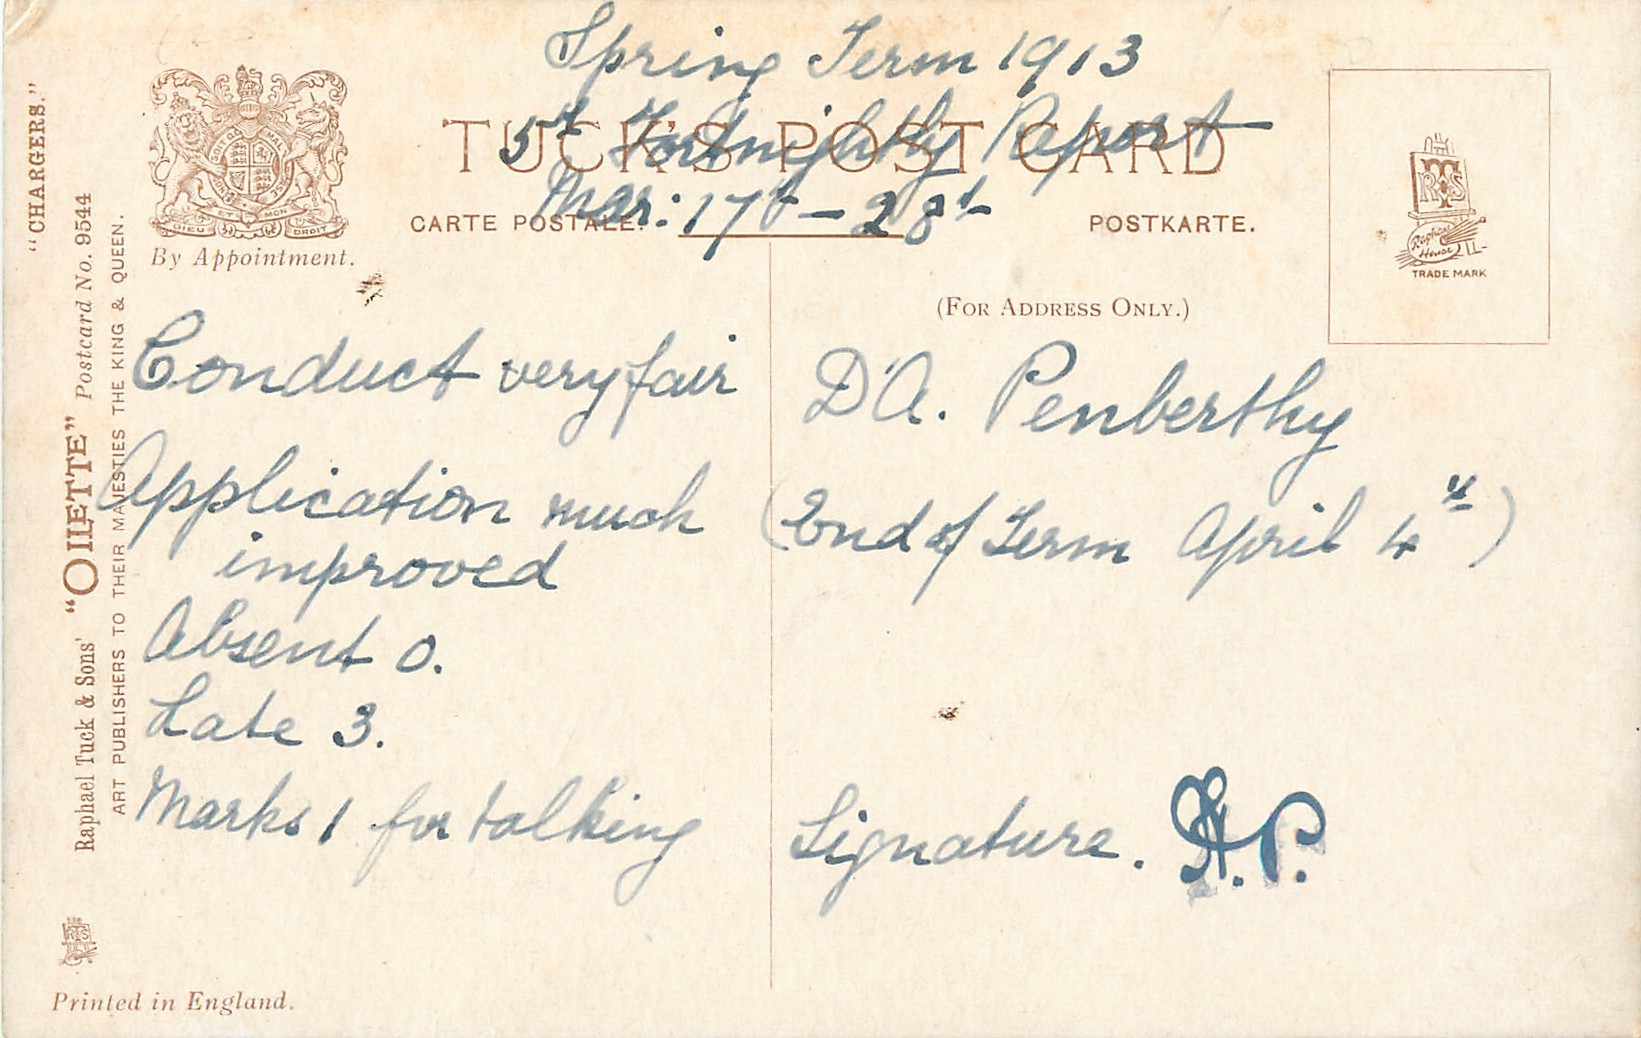 Spring Term 1913
5th Fortnightly Report
Mar: 17th - 28th
TUCK'S POST CARD
CARTE POSTALE.
POSTKARTE.
By Appointment.
(FOR ADDRESS ONLY.)
TRADE MARK
Conduct very fair
Application much
improved
Absent 0.
Late 3.
Marks 1 for talking
D.A. Penberthy
(End of Term April 4th)
Signature. H.P.
"CHARGERS."
Raphael Tuck & Sons' "OILETTE" Postcard No. 9544
ART PUBLISHERS TO THEIR MAJESTIES THE KING & QUEEN.
Printed in England.